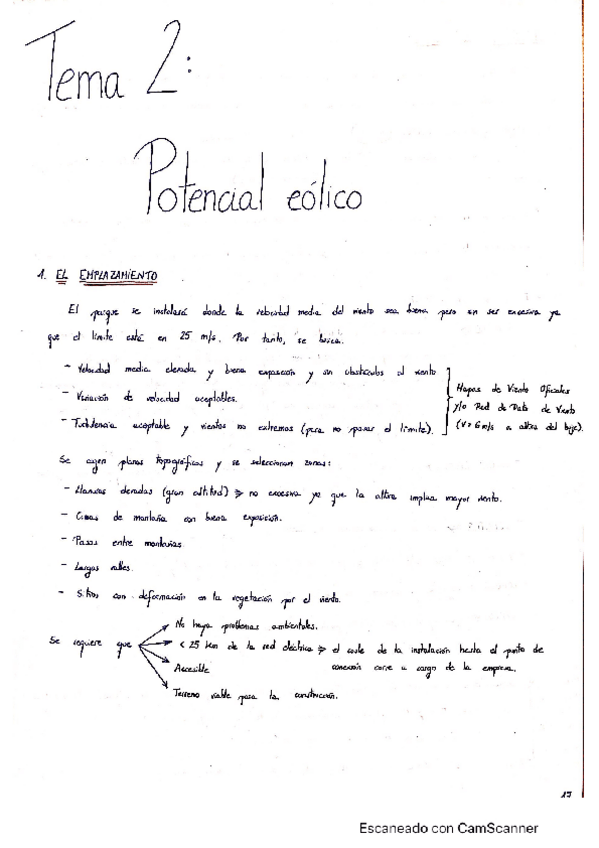 Tema 2:
Potencial eólico
1. EL EMPLAZAMIENTO
El parque se instalará donde la velocidad media del viento sea buena pero sin ser excesiva ya
que el límite está en 25 m/s. Por tanto, se busca.
- Velocidad media elevada y buena exposición y sin obstáculos al viento
- Variación de velocidad aceptables.
- Turbulencia aceptable y vientos no extremos (para no pasar el límite).
Mapas de Viento Oficiales
y/o Red de Datos de Viento
(v > 6 m/s a altura del buje).
Se cogen planos topográficos y se seleccionan zonas:
- Llanuras elevadas (gran altitud) ⇒ no excesiva ya que la altura implica mayor viento.
- Cimas de montaña con buena exposición.
- Pasos entre montañas
- Largos valles.
- Sitios con deformación en la vegetación por el viento.
Se requiere que
No haya problemas ambientales.
< 25 km de la red eléctrica ⇒ el coste de la instalación hasta el punto de
conexión corre a cargo de la empresa.
Accesible
Terreno viable para la construcción.
17
Escaneado con CamScanner